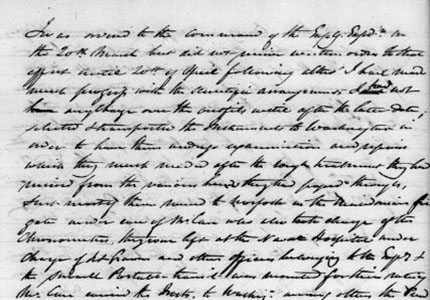 I was ordered to the command of the Expg. Expdn. on
the 20th March but did not receive written orders to that
effect until 20th of April following altho' I had made
much progress with the arrangements I had not
any charge over the outfits until after the latter date,
selected & transported the Instruments to Washington in
order to have them undergo examination and repairs
which they much needed after the rough treatment they had
received from the various hands they had passed through,
most of them round to Norfolk in the Macedonian fri
gate under care of Mr who also took charge of the
Chronometers. They were left at the Naval Hospital under
charge of Lt. and other officers belonging to the Expn. &
the small Portable transit was mounted for their rating
Mr carried the Insts. to Washn. among others the